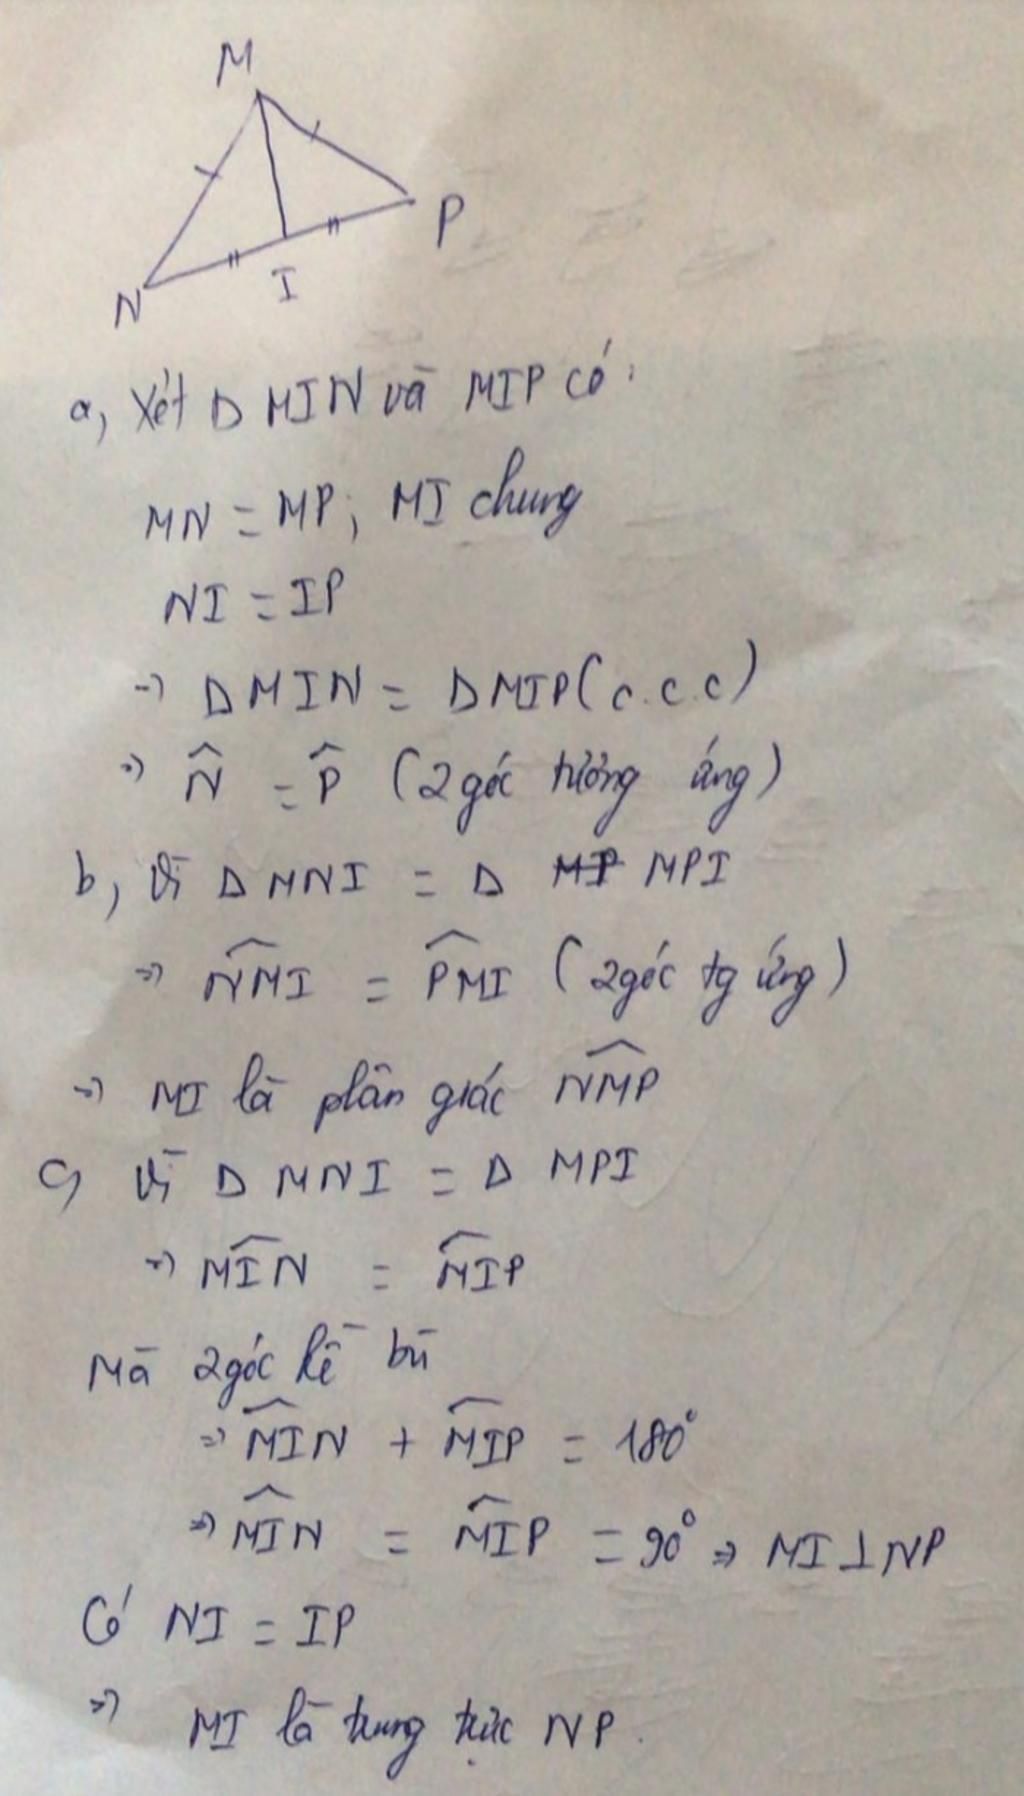 M
P
N
I
a, Xét Δ MIN và MIP có:
MN = MP; MI chung
NI = IP
=> Δ MIN = Δ MIP (c.c.c)
=> N̂ = P̂ (2 góc tương ứng)
b, Vì Δ MNI = Δ ~~MIP~~ MPI
=> N̂MI = P̂MI (2 góc tg ứng)
=> MI là phân giác N̂MP
c, Vì Δ MNI = Δ MPI
=> M̂IN = M̂IP
Mà 2 góc kề bù
=> M̂IN + M̂IP = 180°
=> M̂IN = M̂IP = 90° => MI ⊥ NP
Có NI = IP
=> MI là trung trực NP.